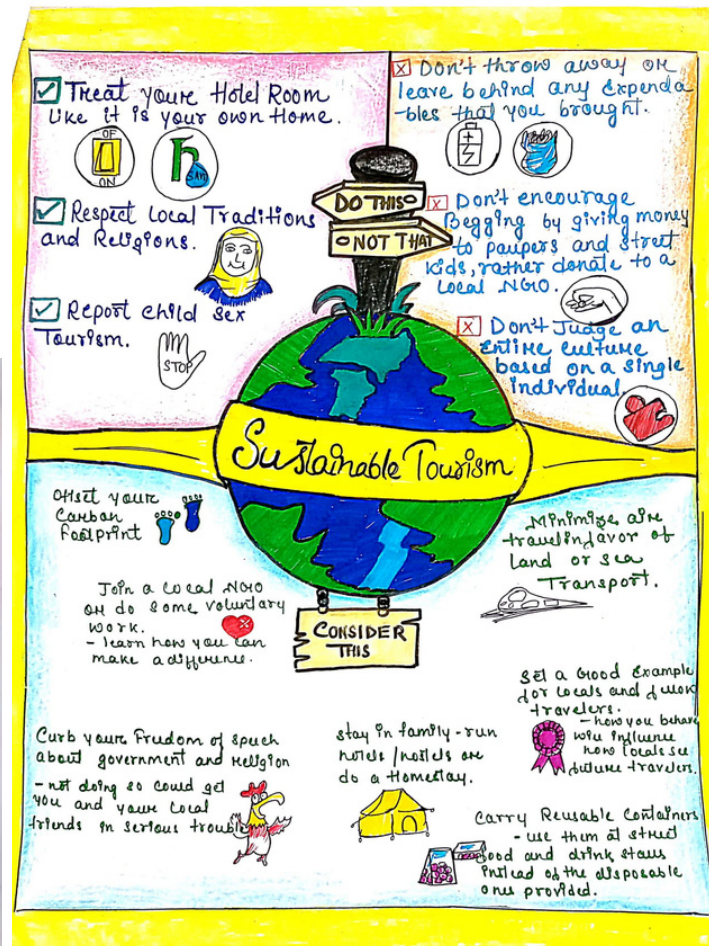 Treat your Hotel Room
Like it is your own Home.
OF
ON
SAVE
Respect Local Traditions
and Religions.
Report Child Sex
Tourism.
STOP
DO THIS
NOT THAT
Don't throw away or
leave behind any Expenda
-bles that you brought.
Don't encourage
Begging by giving money
to paupers and street
kids, rather donate to a
Local NGO.
Don't Judge an
Entire culture
based on a single
individual.
Sustainable Tourism
Offset your
Carbon
Footprint
Join a Local NGO
or do some voluntary
work.
- learn how you can
make a difference.
CONSIDER
THIS
Minimize air
travel in favor of
Land or sea
Transport.
Set a Good Example
for Locals and fellow
travelers.
- how you behave
will influence
how locals see
future travelers.
Curb your Freedom of speech
about government and religion
- not doing so could get
you and your Local
friends in serious trouble
Stay in family-run
hotels/hostels or
do a Homestay.
Carry Reusable Containers
- use them at street
food and drink stalls
instead of the disposable
ones provided.